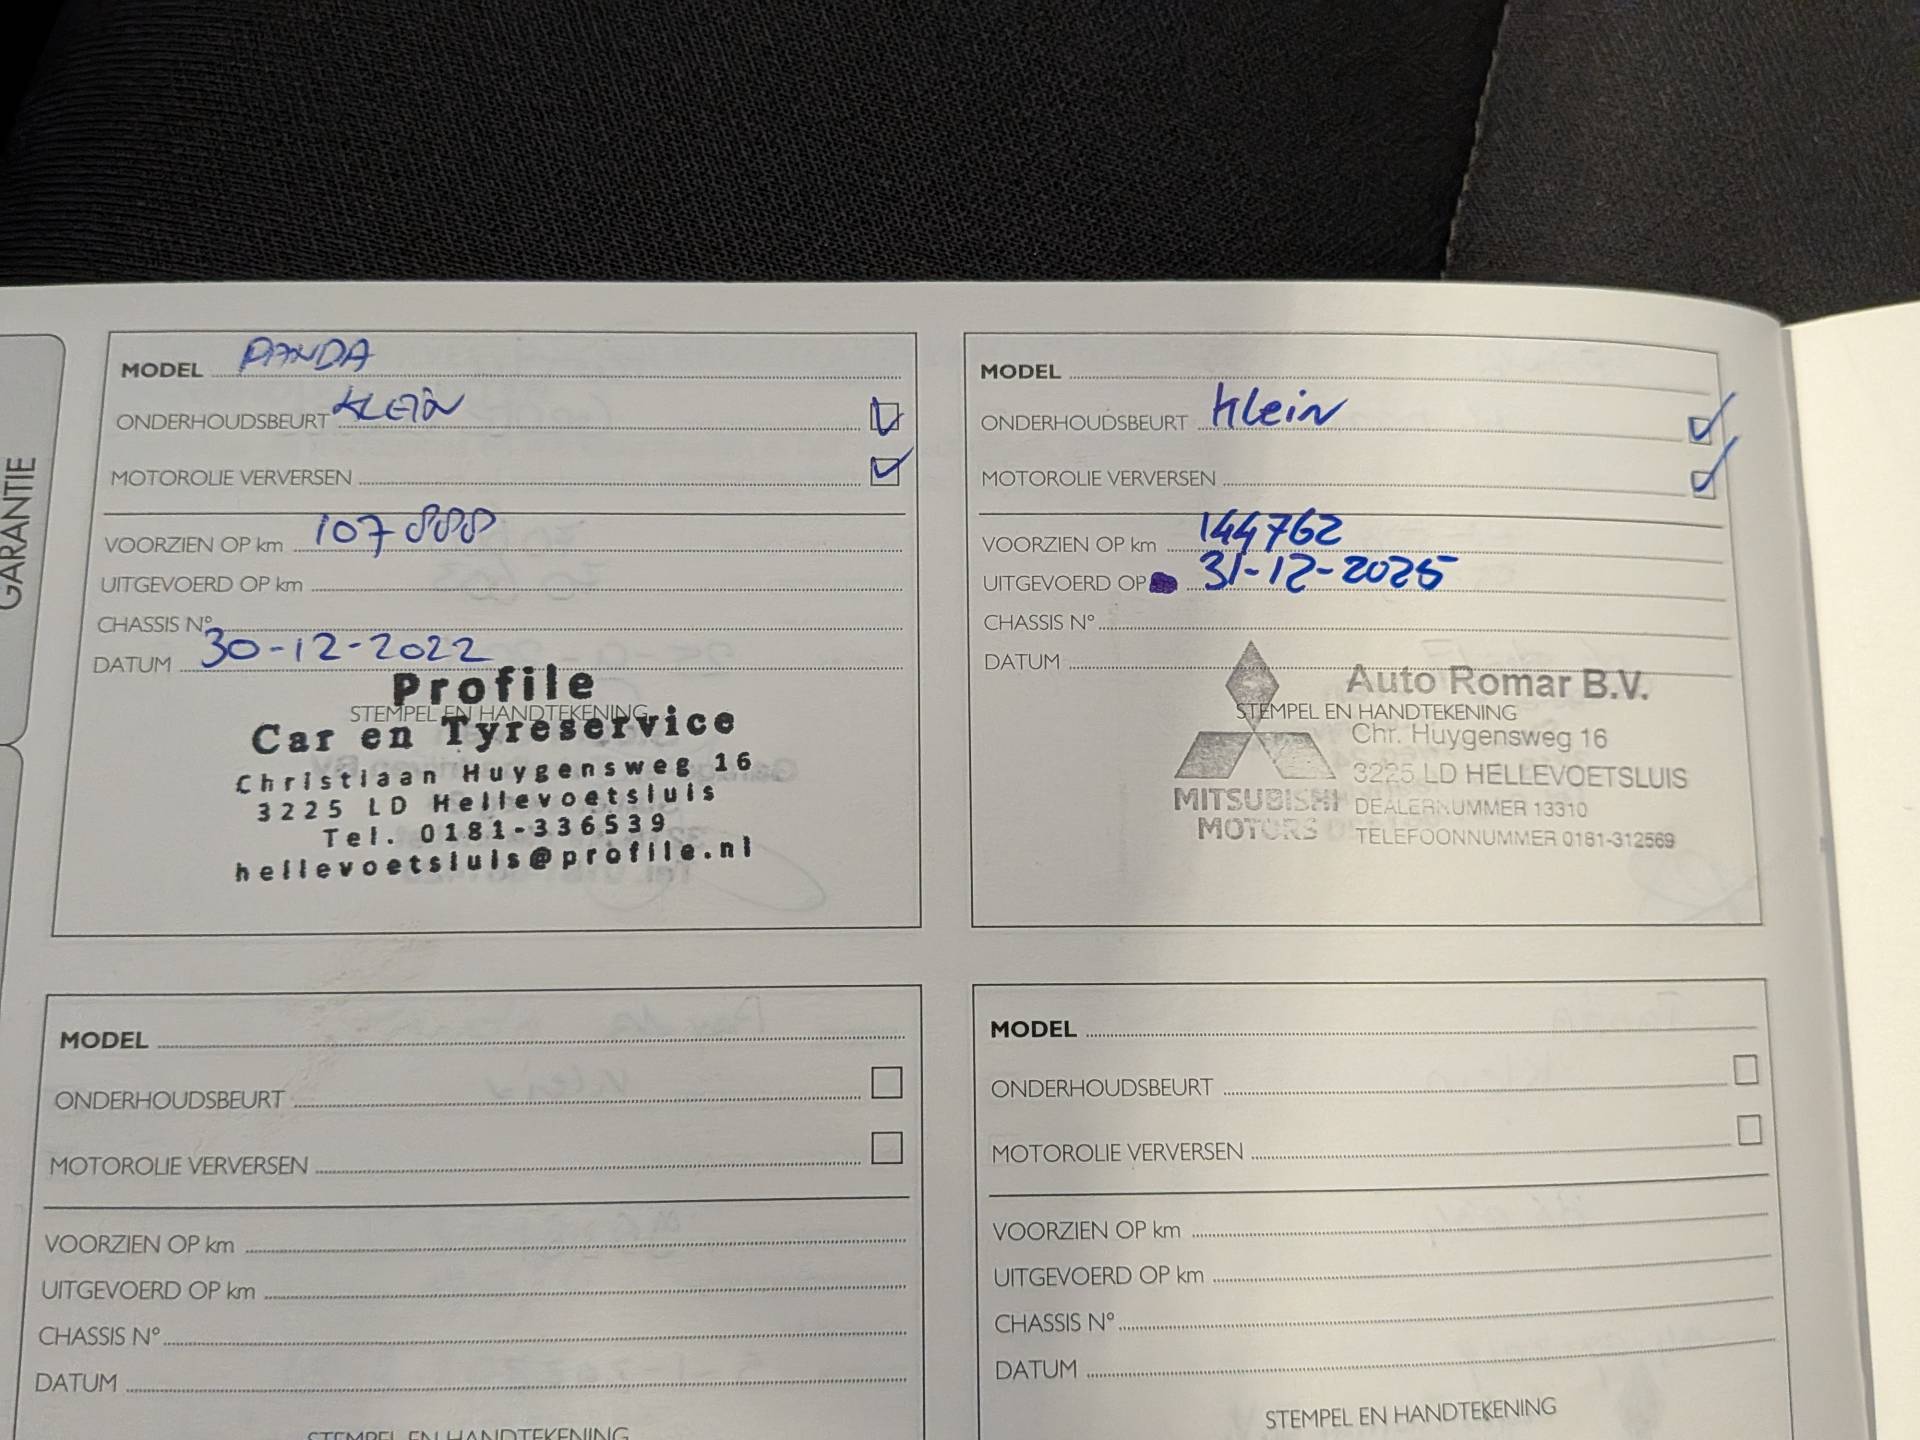 GARANTIE
MODEL PANDA
ONDERHOUDSBEURT KLEIN
MOTOROLIE VERVERSEN
VOORZIEN OP km 107 888
UITGEVOERD OP km
CHASSIS Nº
DATUM 30-12-2022
Profile
STEMPEL EN HANDTEKENING
Car en Tyreservice
Christiaan Huygensweg 16
3225 LD Hellevoetsluis
Tel. 0181-336539
hellevoetsluis@profile.nl
MODEL
ONDERHOUDSBEURT Klein
MOTOROLIE VERVERSEN
VOORZIEN OP km 144762
UITGEVOERD OP 31-12-2025
CHASSIS Nº
DATUM
Auto Romar B.V.
STEMPEL EN HANDTEKENING
Chr. Huygensweg 16
3225 LD HELLEVOETSLUIS
MITSUBISHI DEALERNUMMER 13310
MOTORS TELEFOONNUMMER 0181-312569
MODEL
ONDERHOUDSBEURT
MOTOROLIE VERVERSEN
VOORZIEN OP km
UITGEVOERD OP km
CHASSIS Nº
DATUM
STEMPEL EN HANDTEKENING
MODEL
ONDERHOUDSBEURT
MOTOROLIE VERVERSEN
VOORZIEN OP km
UITGEVOERD OP km
CHASSIS Nº
DATUM
STEMPEL EN HANDTEKENING